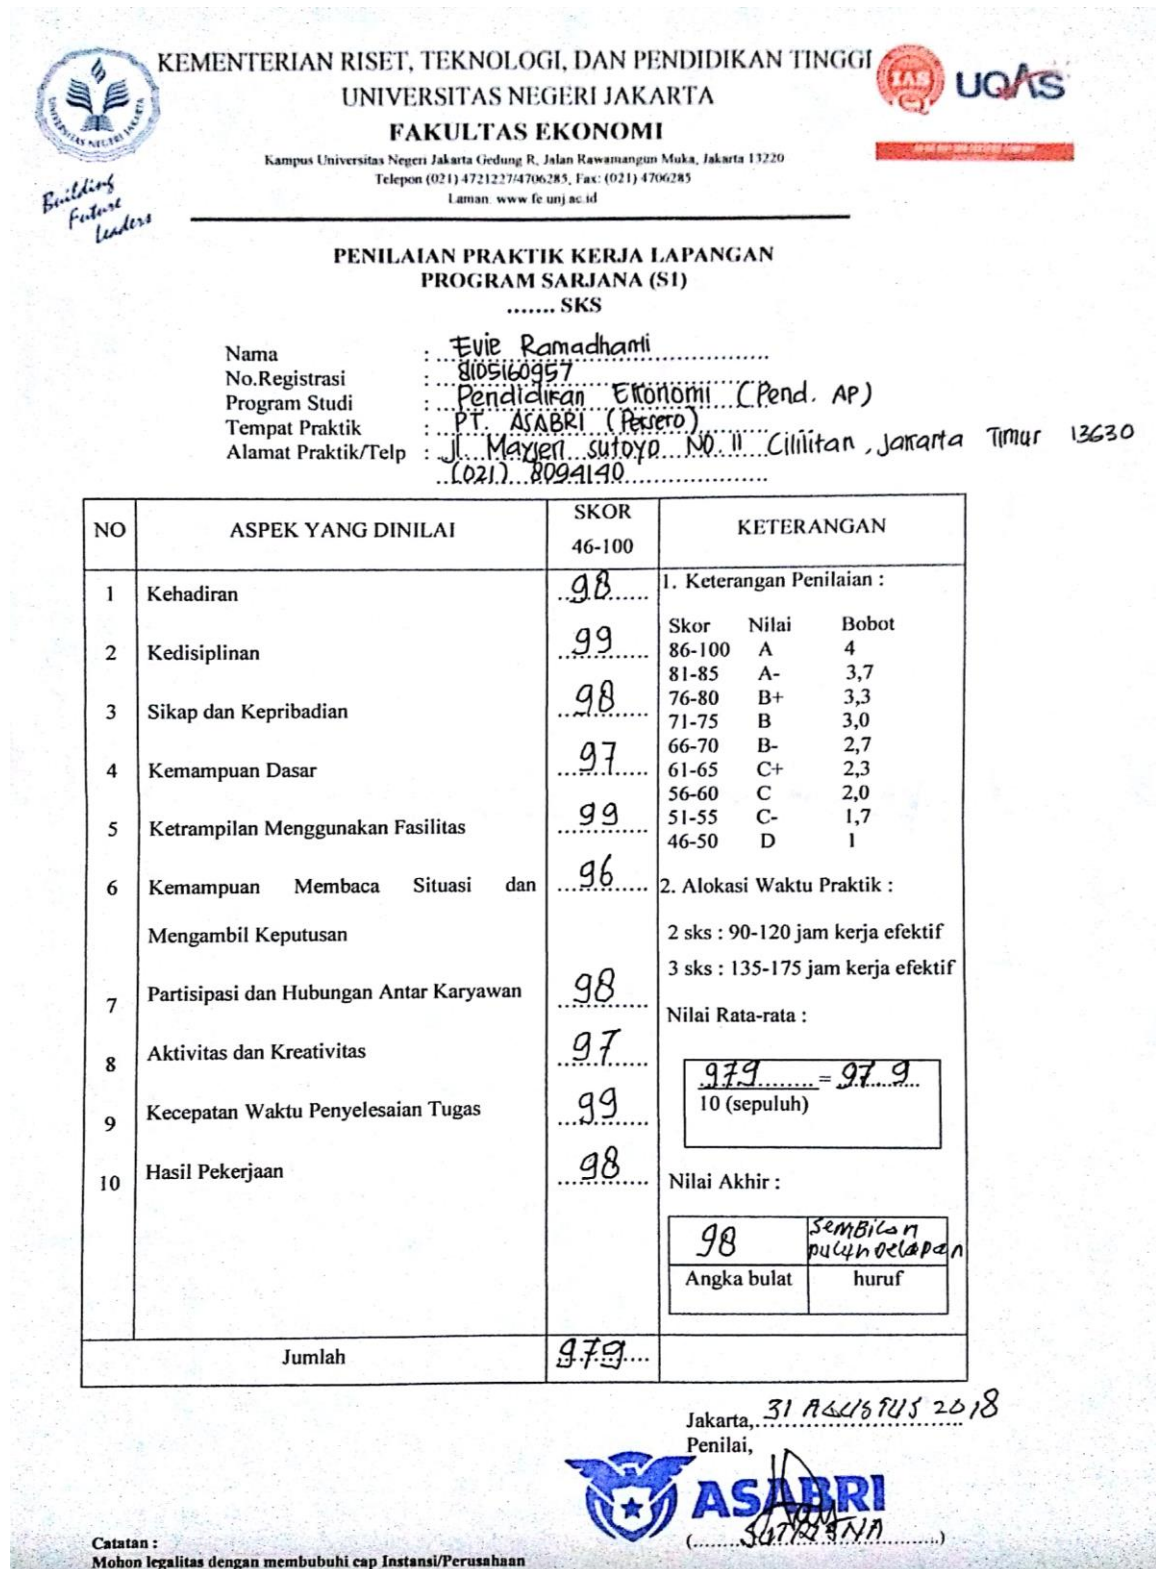 KEMENTERIAN RISET, TEKNOLOGI, DAN PENDIDIKAN TINGGI
UNIVERSITAS NEGERI JAKARTA
FAKULTAS EKONOMI
Kampus Universitas Negeri Jakarta Gedung R, Jalan Rawamangun Muka, Jakarta 13220
Telepon (021) 4721227/4706285, Fax: (021) 4706285
Laman: www.fe.unj.ac.id
UNIVERSITAS NEGERI JAKARTA
Building
Future
Leaders
IAS
UQAS
PENILAIAN PRAKTIK KERJA LAPANGAN
PROGRAM SARJANA (S1)
....... SKS
Nama : Evie Ramadhanti
No.Registrasi : 8105160957
Program Studi : Pendidikan Ekonomi (Pend. AP)
Tempat Praktik : PT. ASABRI (Persero)
Alamat Praktik/Telp : Jl. Mayjen Sutoyo NO. 11 Cililitan, Jakarta Timur 13630
(021) 8094140
NO ASPEK YANG DINILAI SKOR 46-100 KETERANGAN
1 Kehadiran 98
2 Kedisiplinan 99
3 Sikap dan Kepribadian 98
4 Kemampuan Dasar 97
5 Ketrampilan Menggunakan Fasilitas 99
6 Kemampuan Membaca Situasi dan 96
Mengambil Keputusan
7 Partisipasi dan Hubungan Antar Karyawan 98
8 Aktivitas dan Kreativitas 97
9 Kecepatan Waktu Penyelesaian Tugas 99
10 Hasil Pekerjaan 98
1. Keterangan Penilaian :
Skor Nilai Bobot
86-100 A 4
81-85 A- 3,7
76-80 B+ 3,3
71-75 B 3,0
66-70 B- 2,7
61-65 C+ 2,3
56-60 C 2,0
51-55 C- 1,7
46-50 D 1
2. Alokasi Waktu Praktik :
2 sks : 90-120 jam kerja efektif
3 sks : 135-175 jam kerja efektif
Nilai Rata-rata :
979 = 97.9
10 (sepuluh)
Nilai Akhir :
98 Sembilan
puluh delapan
Angka bulat huruf
Jumlah 979
Jakarta, 31 AGUSTUS 2018
Penilai,
ASABRI
(SUTRISNA)
Catatan :
Mohon legalitas dengan membubuhi cap Instansi/Perusahaan